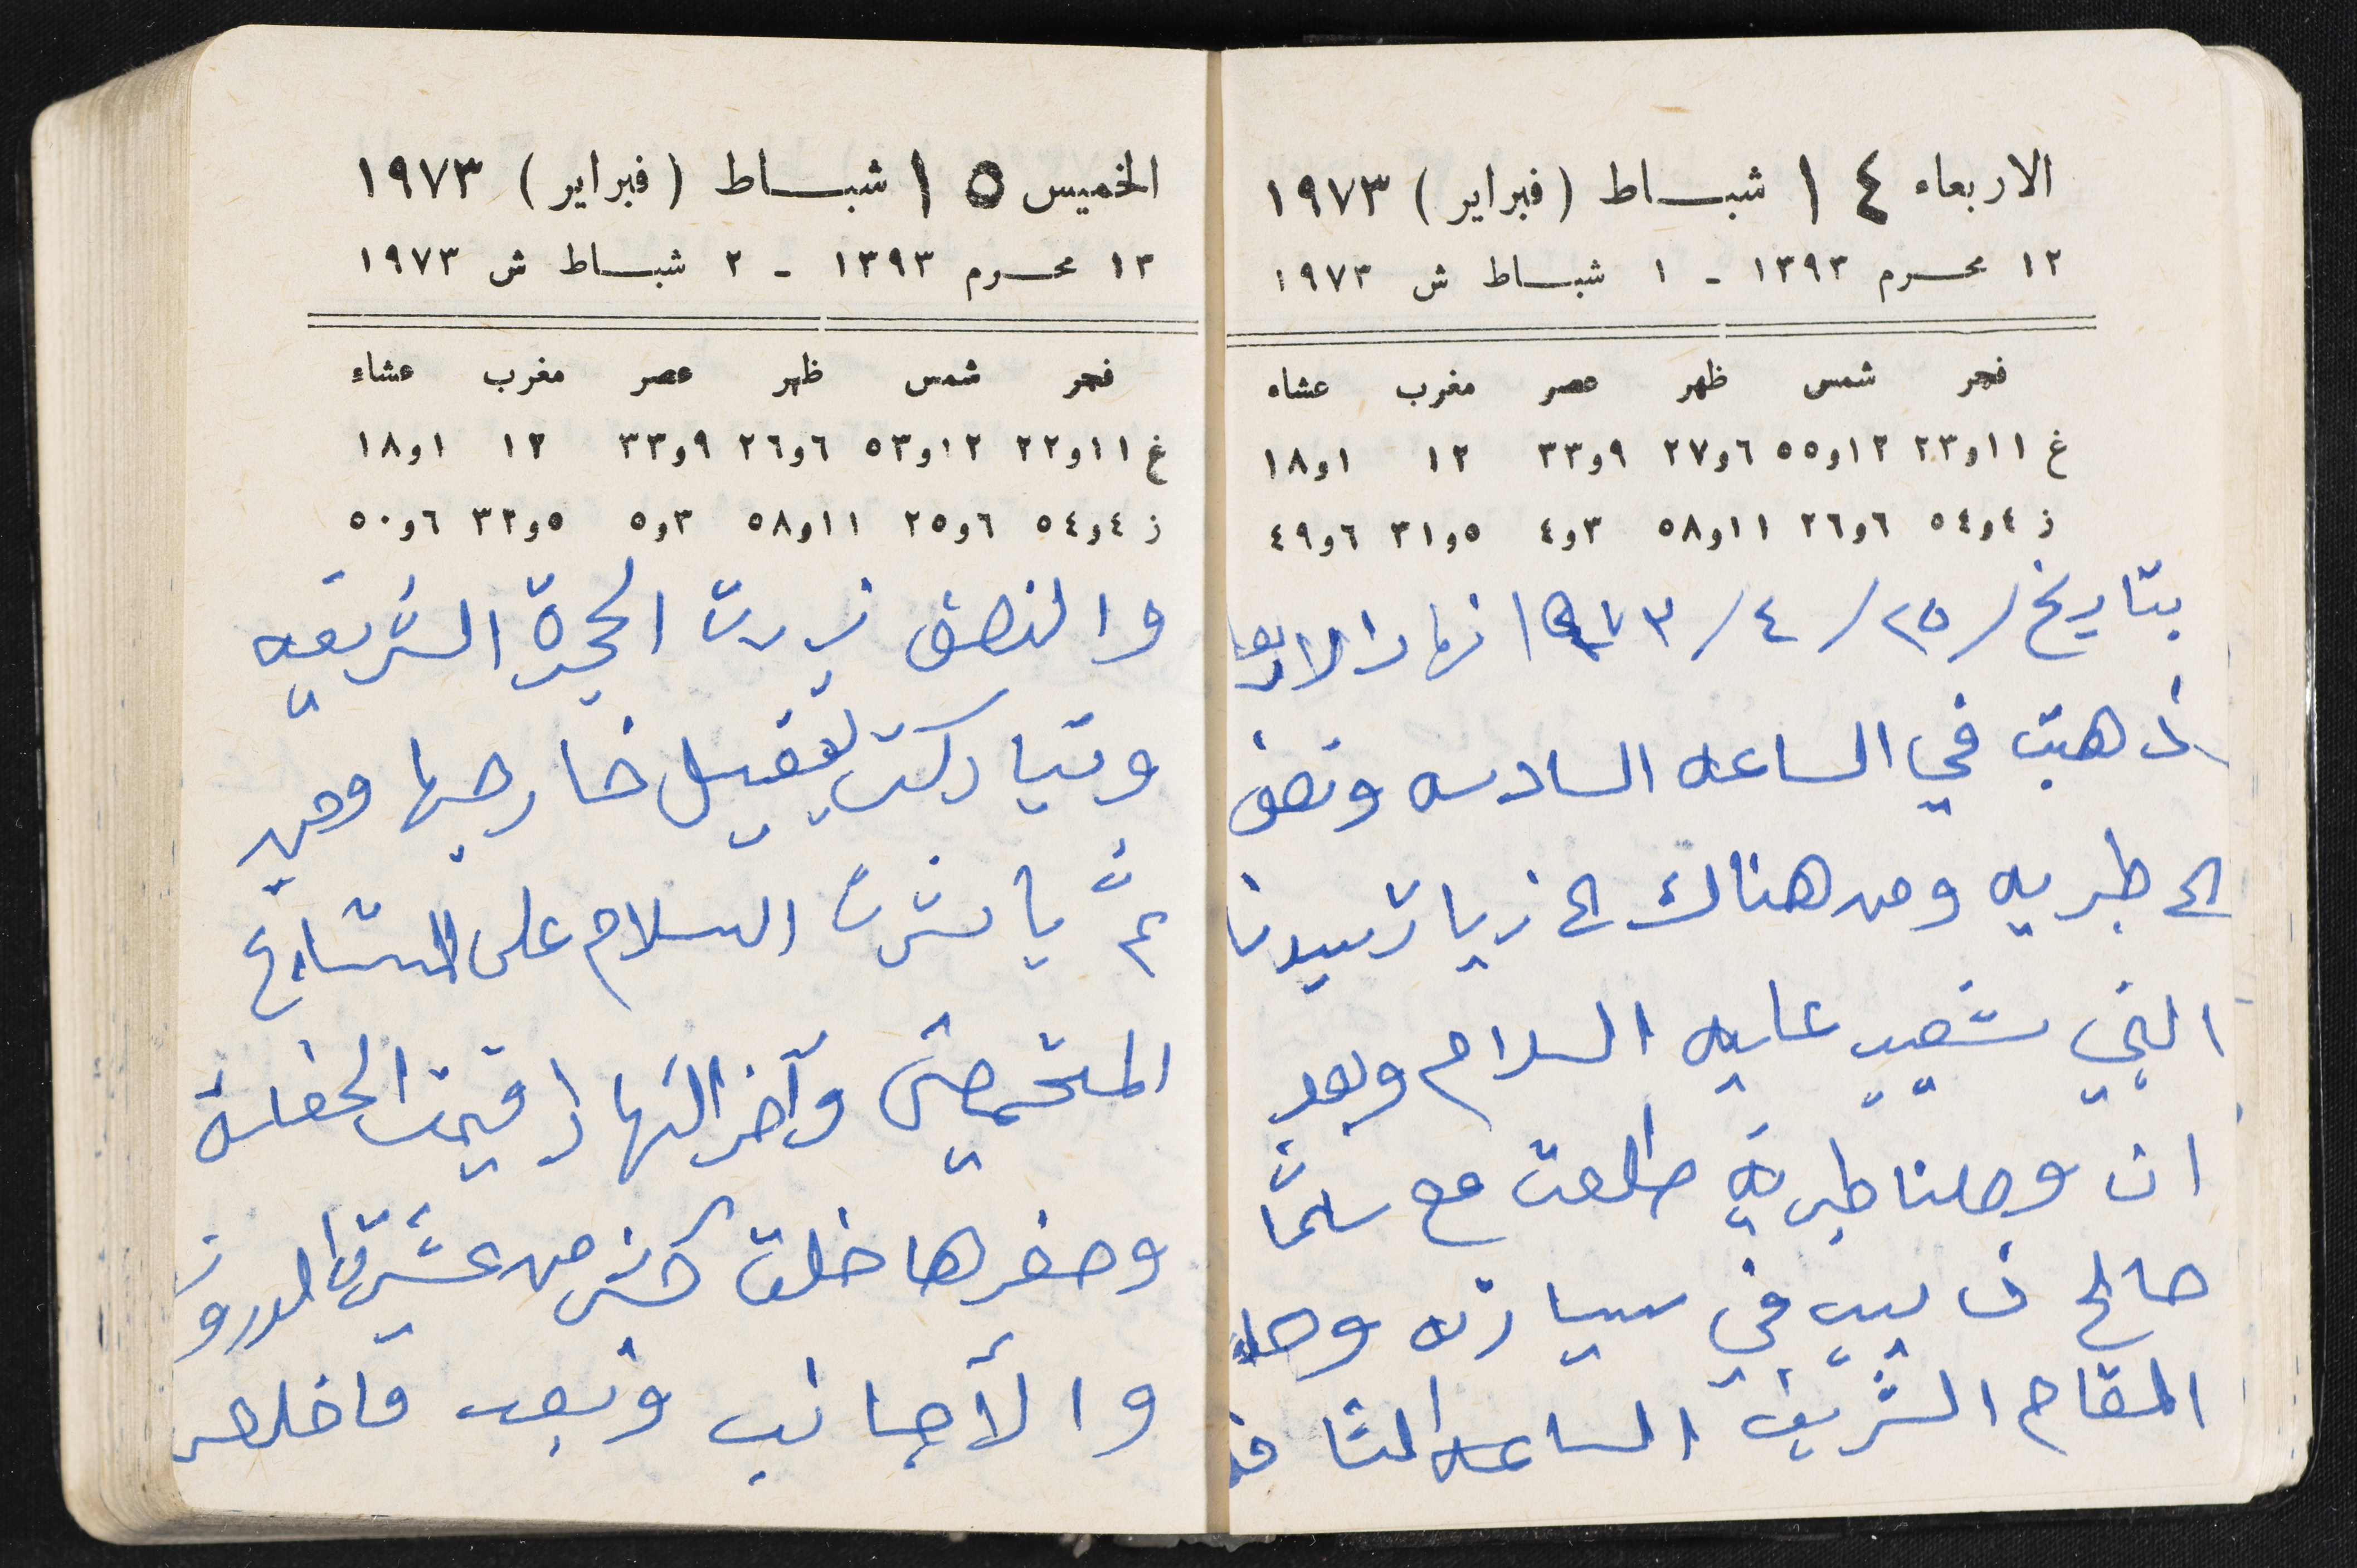 الاربعاء ١٤ شباط (فبراير) ١٩٧٣
١٢ محرم ١٣٩٣ - ١ شباط ش ١٩٧٣
فجر شمس ظهر عصر مغرب عشاء
غ ١١و٢٣ ١٢و٥٥ ٦و٢٧ ٩و٣٣ ١٢ ١و١٨
ز ٤و٥٤ ٦و٢٦ ١١و٥٨ ٣و٤ ٥و٣١ ٦و٤٩
بتاريخ /٢٥/٤/١٩٧٣ نهار الاربعا
ذهبت في الساعه السادسه ونصف
الى طبريه ومن هناك الى زيارة سيدنا
النبي شعيب عليه السلام وبعد
ان وصلنا طبريه طلعت مع سلمان
صالح ذيب في سيارته وصلت
المقام الشريف الساعه الثامنه
الخميس ١٥ شباط (فبراير) ١٩٧٣
١٣ محرم ١٣٩٣ - ٢ شباط ش ١٩٧٣
فجر شمس ظهر عصر مغرب عشاء
غ ١١و٢٢ ١٢و٥٣ ٦و٢٦ ٩و٣٣ ١٢ ١و١٨
ز ٤و٥٤ ٦و٢٥ ١١و٥٨ ٣و٥ ٥و٣٢ ٦و٥٠
والنصف زرت الحجرة الشريفيه
وتباركت بتقبيل خارجها ومن
ثمَّ باشرت السلام على المشايخ
وآخر النهار اقيمت الحفلة
وحضرها خلق كثير من عشيرة الدروز
والأجانب وبعد ما خلص